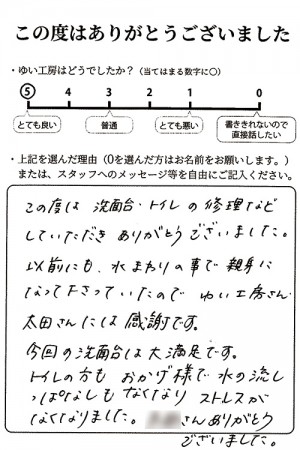 この度はありがとうございました
・ゆい工房はどうでしたか?(当てはまる数字に○)
⑤ 4 3 2 1 0
とても良い 普通 とても悪い 書ききれないので
直接話したい
・上記を選んだ理由(0を選んだ方はお名前をお願いします。)
または、スタッフへのメッセージ等を自由にご記入ください。
この度は 洗面台・トイレの修理など
していただき ありがとうございました。
以前にも、水まわりの事で親身に
なって下さっていたので ゆい工房さん
太田さんには感謝です。
今回の洗面台は大満足です。
トイレの方も おかげ様で水の流し
っぱなしもなくなり ストレスが
なくなりました。 さんありがとう
ございました。